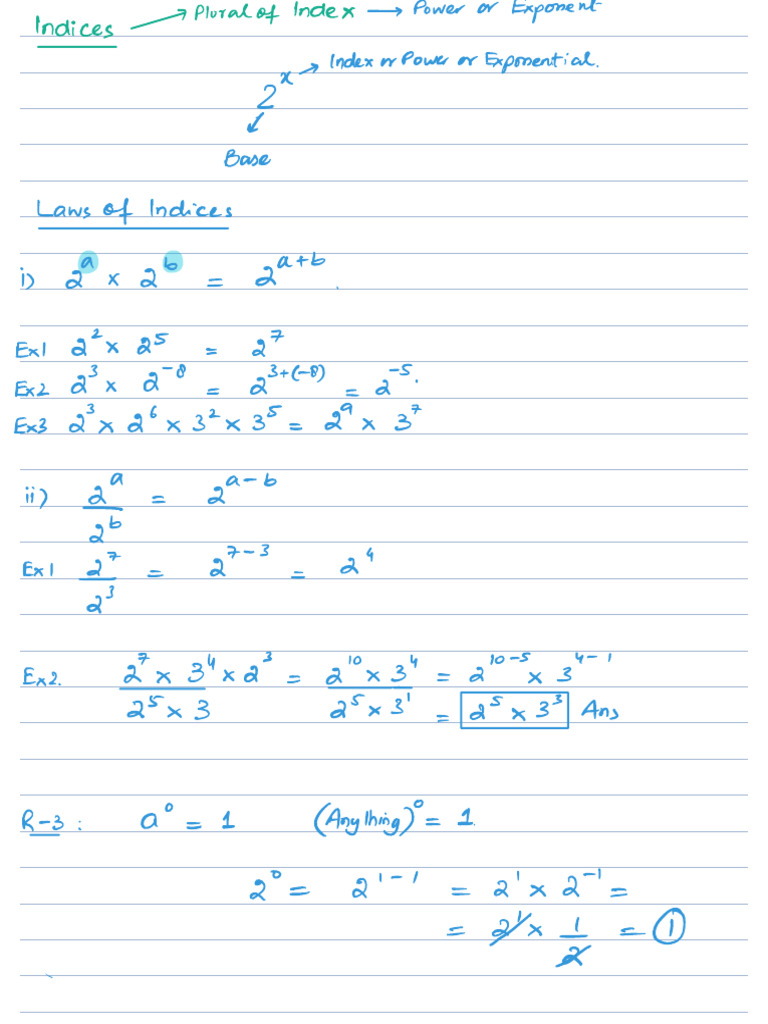 Indices → Plural of Index → Power or Exponent
2ˣ → Index or Power or Exponential.
Base
Laws of Indices
i) 2ᵃ × 2ᵇ = 2ᵃ⁺ᵇ.
Ex1 2² × 2⁵ = 2⁷
Ex2 2³ × 2⁻⁸ = 2³⁺⁽⁻⁸⁾ = 2⁻⁵.
Ex3 2³ × 2⁶ × 3² × 3⁵ = 2⁹ × 3⁷
ii) 2ᵃ / 2ᵇ = 2ᵃ⁻ᵇ
Ex1 2⁷ / 2³ = 2⁷⁻³ = 2⁴
Ex2. (2⁷ × 3⁴ × 2³) / (2⁵ × 3) = (2¹⁰ × 3⁴) / (2⁵ × 3¹) = 2¹⁰⁻⁵ × 3⁴⁻¹
= 2⁵ × 3³ Ans
R-3 : a⁰ = 1 (Anything)⁰ = 1.
2⁰ = 2¹⁻¹ = 2¹ × 2⁻¹ =
= 2¹ × 1/2 = 1